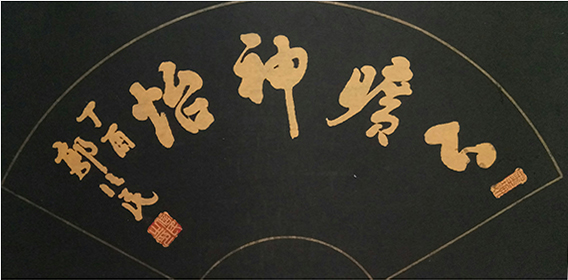 心曠神怡
丁酉
郭